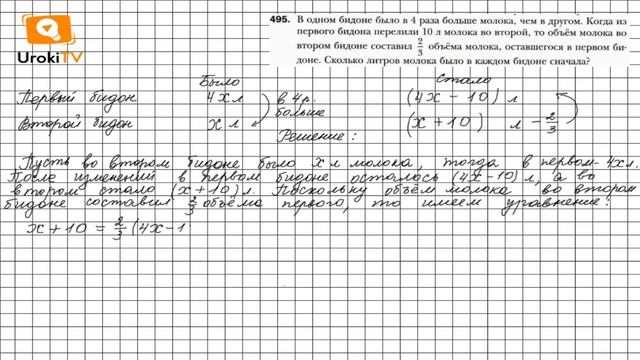 UrokiTV
495. В одном бидоне было в 4 раза больше молока, чем в другом. Когда из
первого бидона перелили 10 л молока во второй, то объём молока во
втором бидоне составил 2/3 объёма молока, оставшегося в первом би-
доне. Сколько литров молока было в каждом бидоне сначала?
Было Стало
Первый бидон 4x л в 4 р. (4x - 10) л
Второй бидон x л больше (x + 10) л - 2/3
Решение:
Пусть во втором бидоне было x л молока, тогда в первом - 4x л.
После изменений в первом бидоне осталось (4x - 10) л, а во
втором стало (x + 10) л. Поскольку объём молока во втором
бидоне составил 2/3 объёма первого, то имеем уравнение:
x + 10 = 2/3 (4x - 1